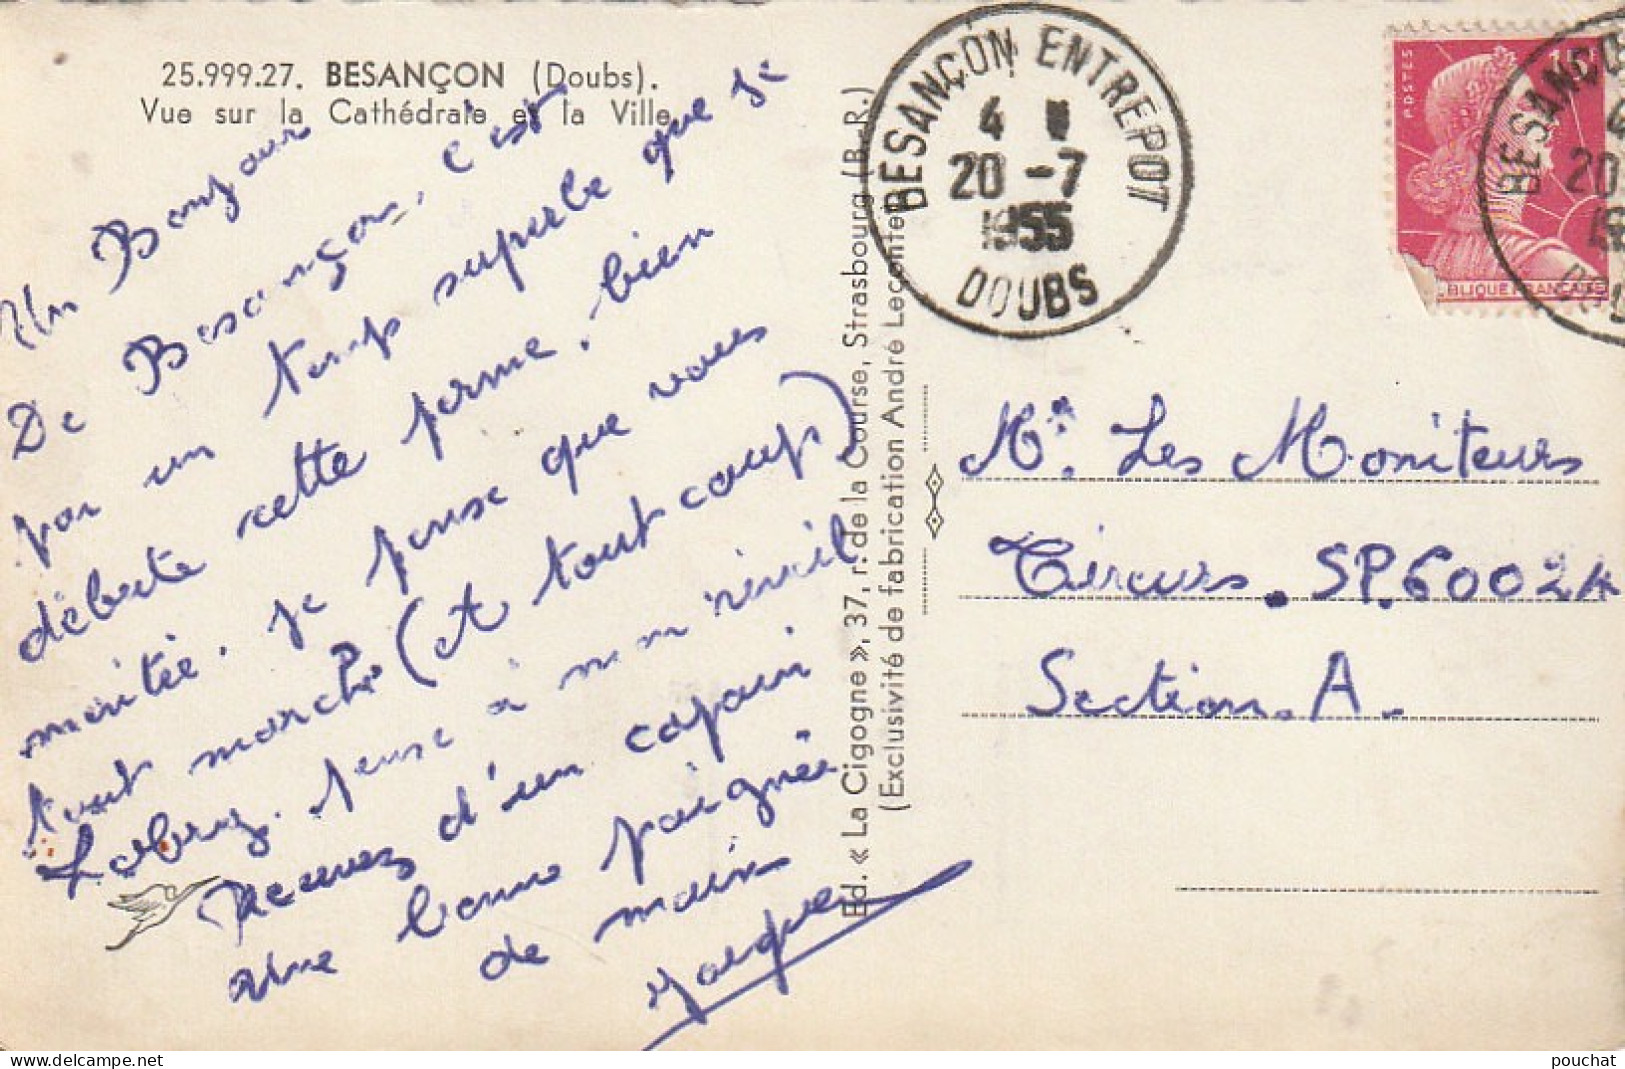 25.999.27. BESANÇON (Doubs).
Vue sur la Cathédrale et la Ville.
Un Bonjour
De Besançon, c'est
par un temps superbe que je
débute cette ferme, bien
méritée. Je pense que vous
tout marche (A tout coup)
pense à mon réveil
Recevez d'un copain
Une bonne poignée
de main
Jacques
Ed. « La Cigogne », 37, r. de la Course, Strasbourg (B.-R.)
(Exclusivité de fabrication André Leconte)
BESANÇON ENTREPOT
4
20 -7
1955
DOUBS
POSTES
15F
BLIQUE FRANÇAISE
BESANÇON
20
Mrs. Les Moniteurs
Tireurs. SP.60024
Section. A.
pouchat